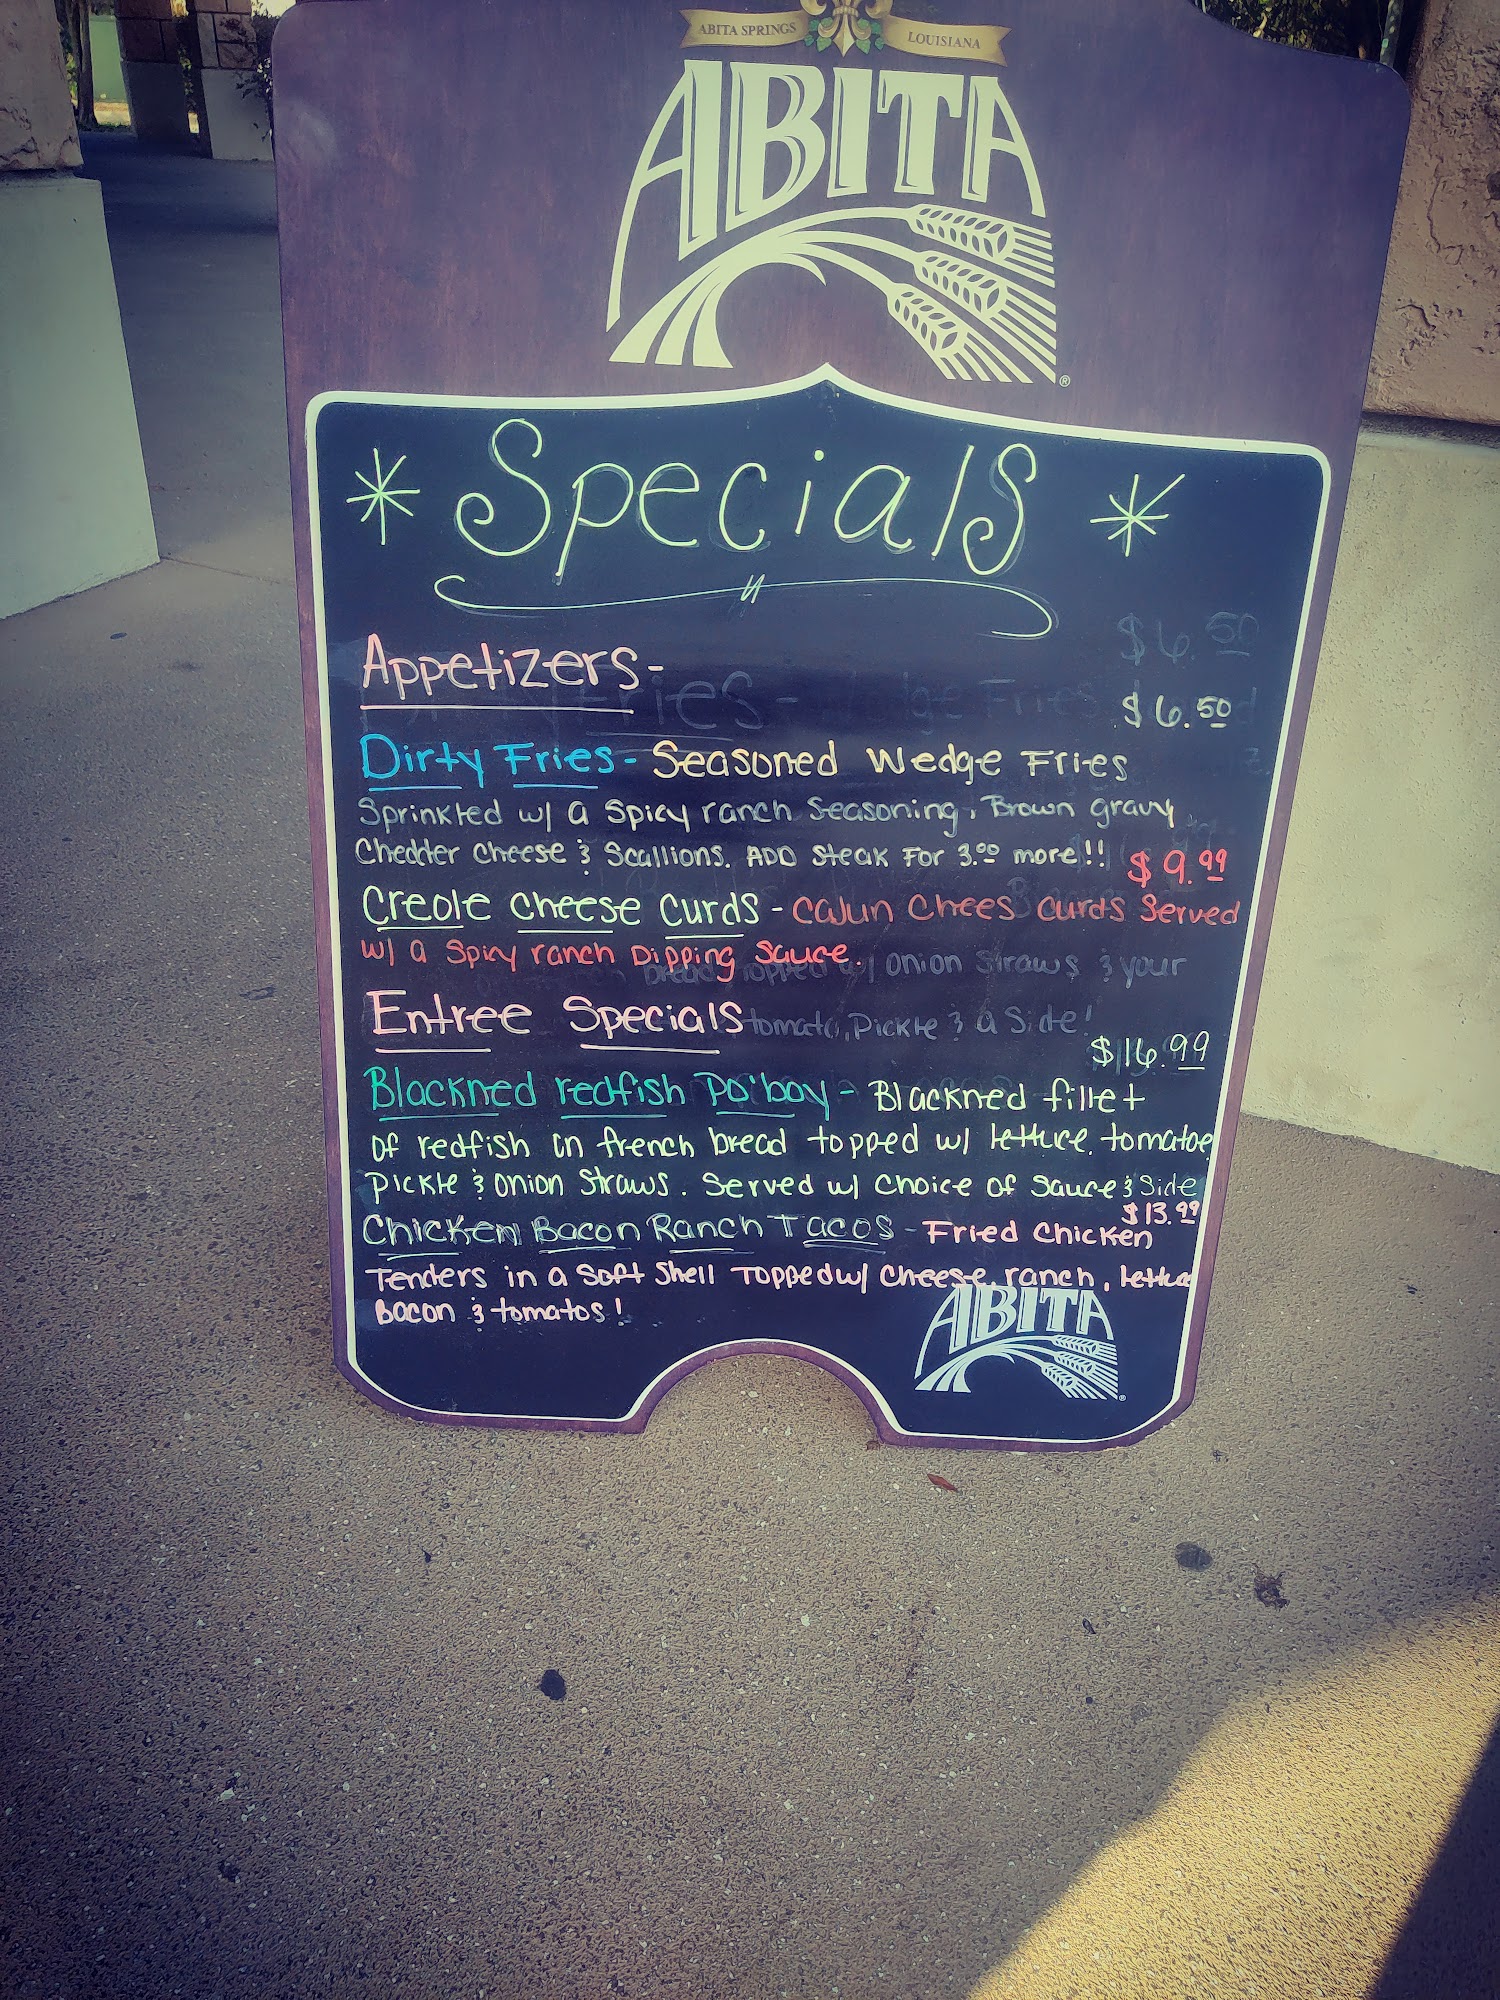 ABITA SPRINGS LOUISIANA
ABITA
®
* Specials *
$6.50
Appetizers-
$6.50
Dirty Fries - Seasoned Wedge Fries
Sprinkled w/ a Spicy ranch Seasoning, Brown gravy
Chedder Cheese & Scallions. ADD Steak For 3.00 more!!
$9.99
Creole Cheese Curds - Cajun Chees Curds Served
w/ a Spicy ranch Dipping Sauce.
Topped w/ onion Straws & your
Entree Specials
tomato, Pickle & a Side!
$16.99
Blackned redfish Po'boy - Blackned fillet
of redfish on french bread topped w/ lettuce, tomatoe
Pickle & onion Straws. Served w/ Choice of Sauce & Side
$13.99
Chicken Bacon Ranch Tacos - Fried Chicken
Tenders in a Soft Shell Topped w/ Cheese, ranch, lettuce
Bacon & tomatos!
ABITA
®